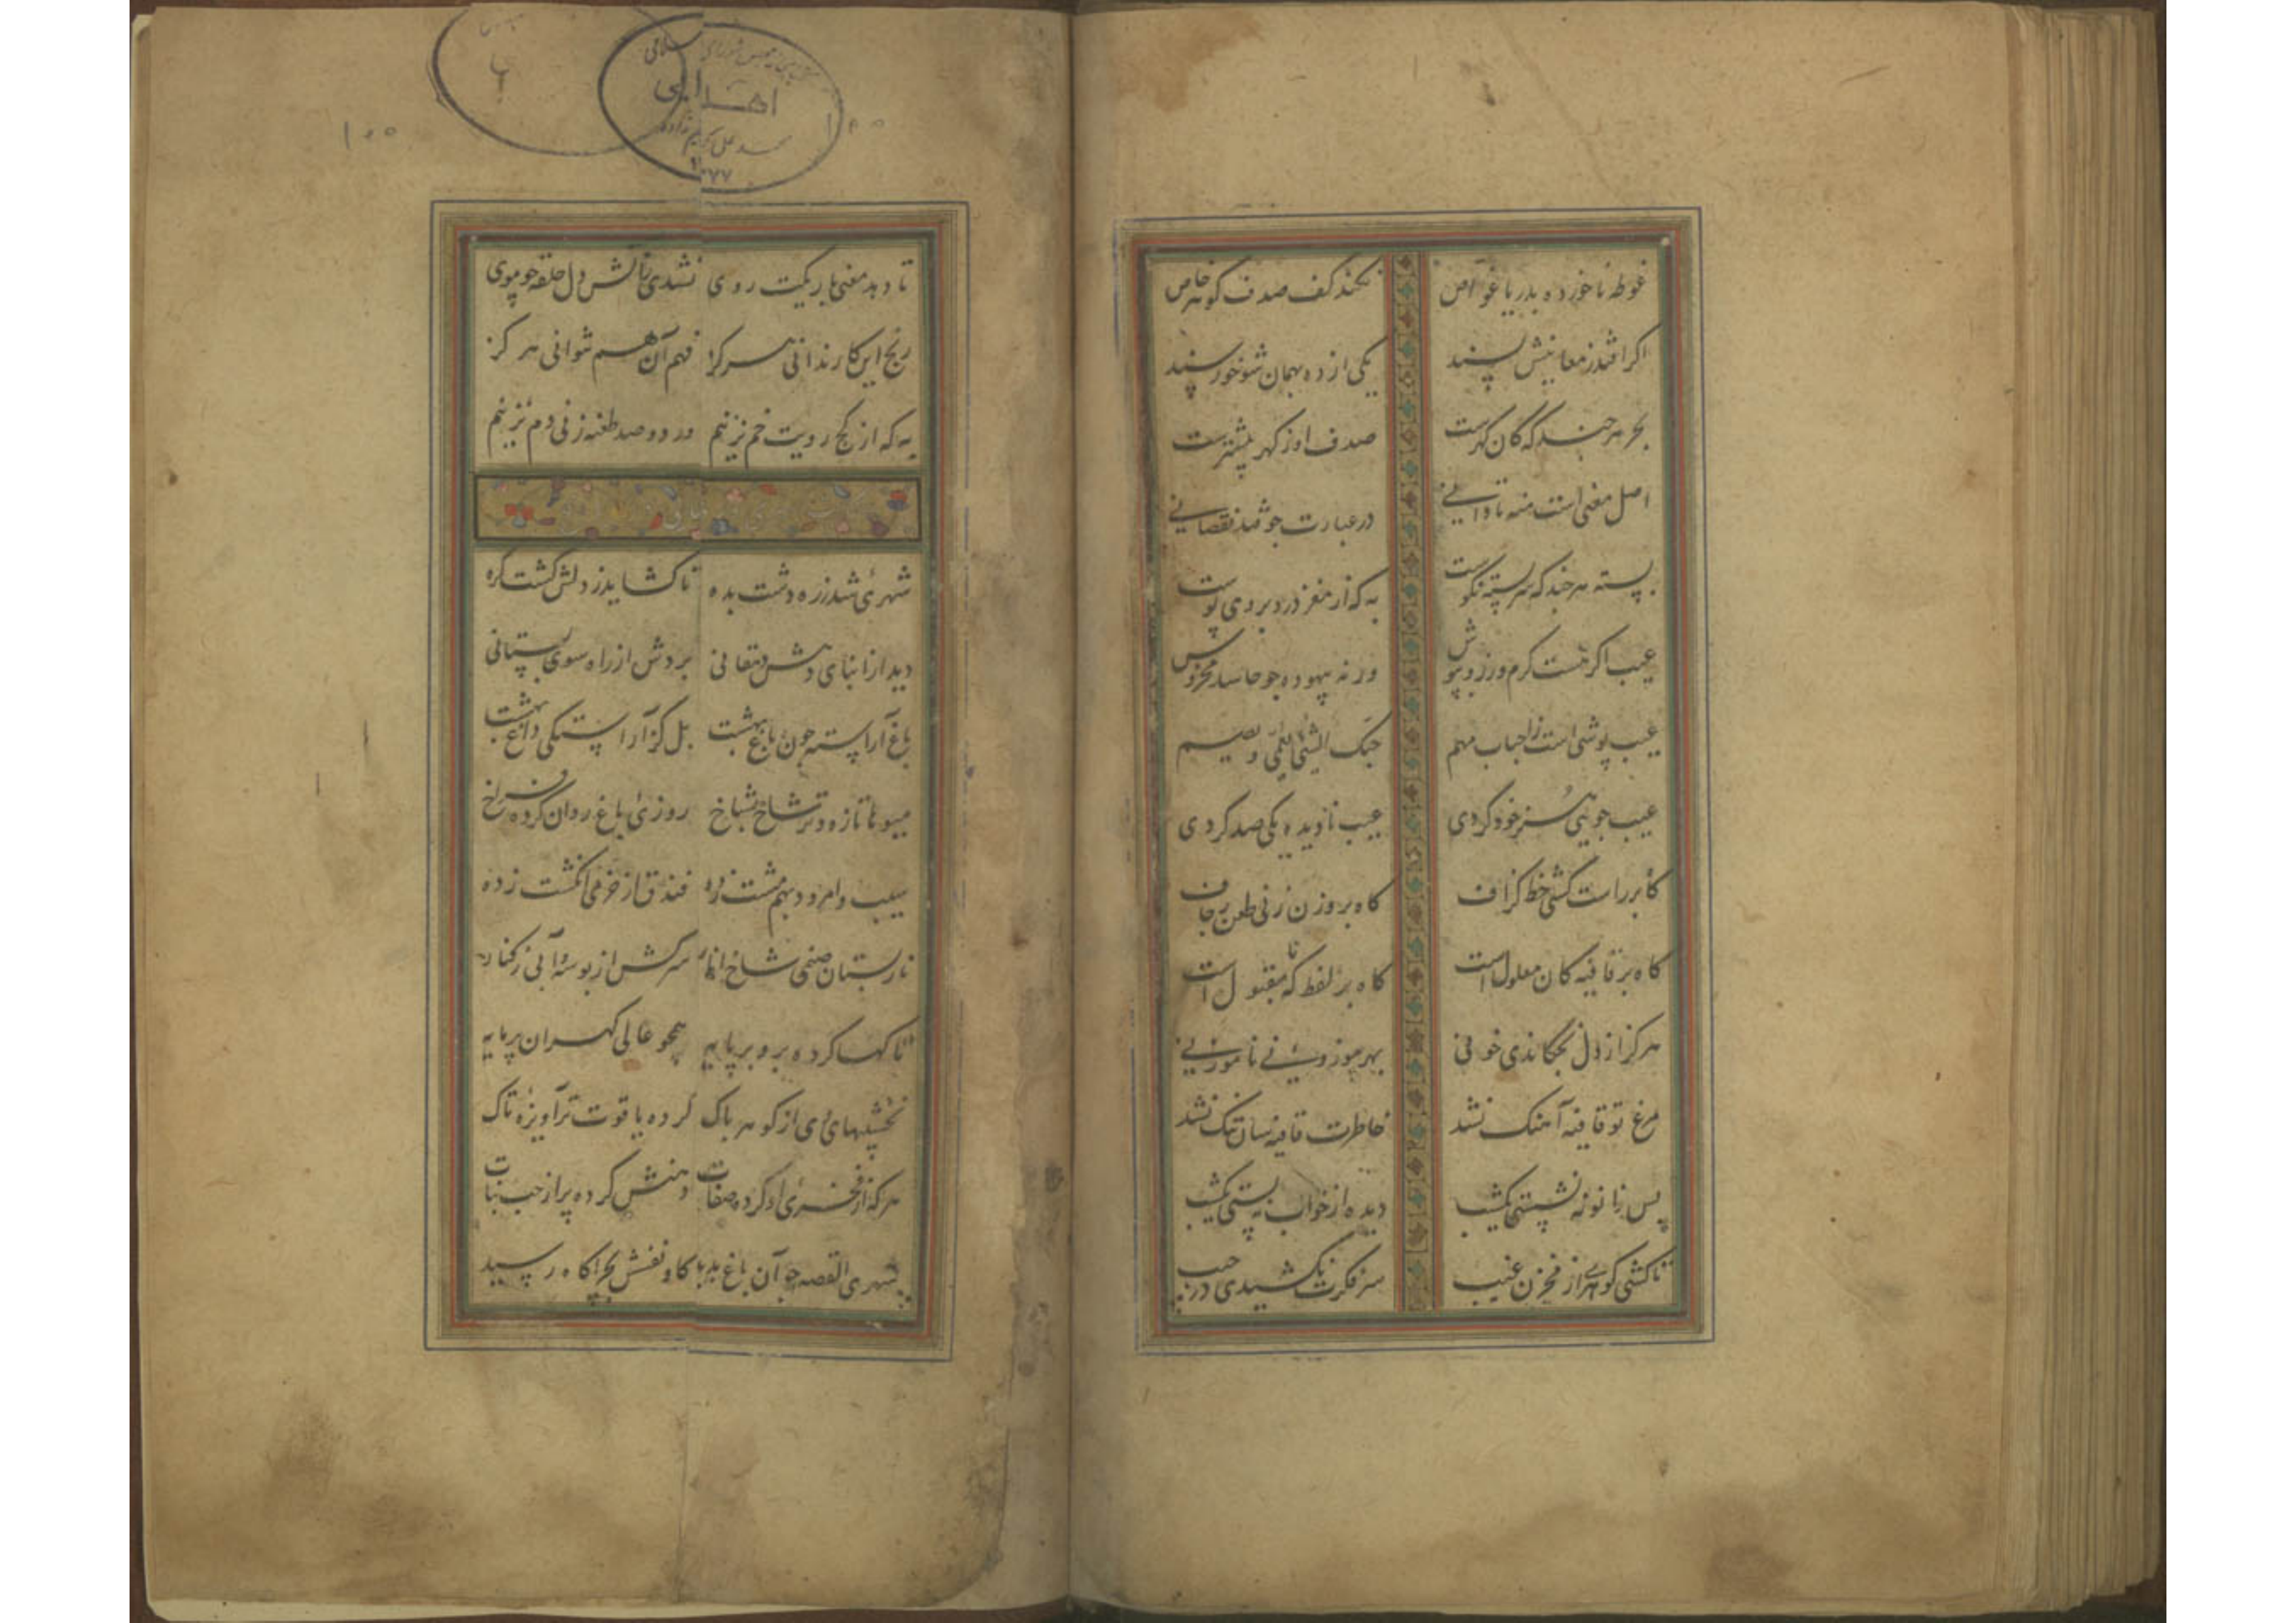 غوطه ناخورده بدریا غواص نکند کف صدف کوهر خاص
اکر افتد ز معانیش پسند یکی از ده بهمان شو خورسند
بحر هر چند که کان کهرست صدف او ز کهر پیشترست
اصل معنی است منه تا دانی در عبارت جو فتد نقصانی
پسته هر چند که سر بسته نکوست به که از مغز درد بر وی پوست
عیب اکر هست کرم ورز و بپوش ورنه بیهوده جو حاسد مخروش
عیب پوشی است ز احباب مهم حبک الشی یعمی و یصم
عیب جویی هنر خود کردی عیب نادیده یکی صد کردی
کاه بر راست کشی خط کزاف کاه بر وزن زنی طعن زحاف
کاه بر قافیه کان معلول است کاه بر لفظ که نامقبول است
هرکز از دل نچکاندی خونی بهر موزونی ناموزونی
مرغ تو قافیه آهنک نشد خاطرت قافیه سان تنک نشد
پس زانو ننشستی یکشب دیده از خواب نبستی یکشب
تا کشی کوهری از مخزن غیب سر فکرت نکشیدی در جیب
کتابخانه مجلس شورای اسلامی
اهدایی
سید علی کریم زاده
۱۳۷۷
۱۰۰
تا دهد معنی باریکت روی نشدی ز آتش دل حلقه جو موی
رنج این کار ندانی هرکز فهم آن هم نتوانی هرکز
به که از کج رویت خم نزنیم ور دو صد طعنه زنی دم نزنیم
شهریی شد ز ره دشت بده تا کشاید ز دلش کشت کره
دید از ابنای دهش دهقانی بردش از راه سوی بستانی
باغ آراسته چون باغ بهشت بل کز آراستکی داغ بهشت
میوها تازه و تر شاخ بشاخ روزی باغ روان کرده فراخ
سیب و امرود بهم مشت زده فندق از خرمی انکشت زده
نار پستان صنمی شاخ انار سرکش از بوسه و آبی ز کنار
تاکها کرده برو بر پایه همچو عالی کهران پر مایه
خوشهای وی از کوهر پاک کرده یاقوت تر آویزه تاک
هر که از فخری او کرده صفات دهنش کرده پر از حب نبات
شهری القصه چو آن باغ بدید کاو نفسش بچراکاه رسید